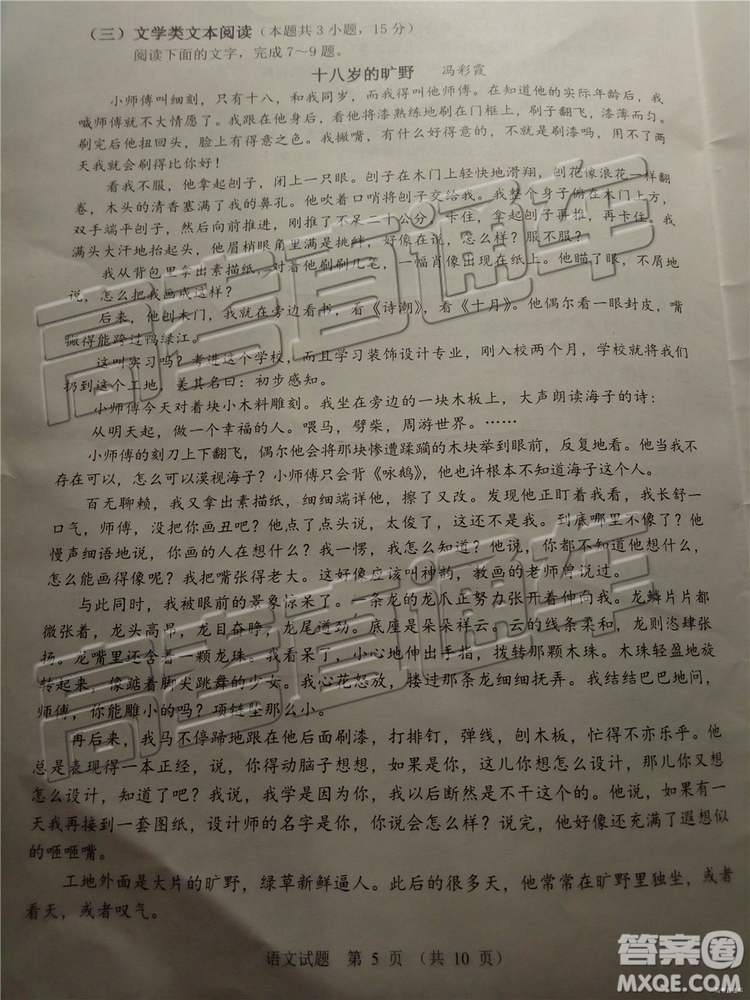 （三）文学类文本阅读（本题共3小题，15分）
阅读下面的文字，完成7～9题。
十八岁的旷野 冯彩霞
小师傅叫细刻，只有十八，和我同岁，而我得叫他师傅。在知道他的实际年龄后，我
喊师傅就不大情愿了。我跟在他身后，看他将漆熟练地刷在门框上，刷子翻飞，漆薄而匀。
刷完后他扭回头，脸上有得意之色。我撇嘴，有什么好得意的，不就是刷漆吗，用不了两
天我就会刷得比你好！
看我不服，他拿起刨子，闭上一只眼。刨子在木门上轻快地滑翔，刨花像浪花一样翻
卷，木头的清香塞满了我的鼻孔。他吹着口哨将刨子交给我。我学他俯身在木门上方，
双手端平刨子，然后向前推进，刚推了不足二十公分，卡住，拿起刨子再推，再卡住。我
满头大汗地抬起头，他眉梢眼角里满是挑衅，好像在说，怎么样？服不服？
我从背包里拿出素描纸，对着他刷刷几笔，一幅肖像出现在纸上。他瞄了眼，不屑地
说，怎么把我画成这样？
后来，他刨木门，我就在旁边看书，看《诗潮》，看《十月》。他偶尔看一眼封皮，嘴
撇得能跨过鸭绿江。
这叫实习吗？考进这个学校，而且学习装饰设计专业，刚入校两个月，学校就将我们
扔到这个工地，美其名曰：初步感知。
小师傅今天对着块小木料雕刻。我坐在旁边的一块木板上，大声朗读海子的诗：
从明天起，做一个幸福的人。喂马，劈柴，周游世界。……
小师傅的刻刀上下翻飞，偶尔他会将那块惨遭蹂躏的木块举到眼前，反复地看。他当我不
存在可以，怎么可以漠视海子？小师傅只会背《咏鹅》，他也许根本不知道海子这个人。
百无聊赖，我又拿出素描纸，细细端详他，擦了又改。发现他正盯着我看，我长舒一
口气，师傅，没把你画丑吧？他点了点头说，太俊了，这还不是我。到底哪里不像了？他
慢声细语地说，你画的人在想什么？我一愣，我怎么知道？他说，你都不知道他想什么，
怎么能画得像呢？我把嘴张得老大。这好像应该叫神韵，教画的老师曾说过。
与此同时，我被眼前的景象惊呆了。一条龙的龙爪正努力张开着伸向我。龙鳞片片都
微张着，龙头高昂，龙目奋睁，龙尾遒劲。底座是朵朵祥云。云的线条柔和，龙则恣肆张
扬。龙嘴里还含着一颗龙珠。我看呆了，小心地伸出手指，拨转那颗木珠。木珠轻盈地旋
转起来，像踮着脚尖跳舞的少女。我心花怒放，搂过那条龙细细抚弄。我结结巴巴地问，
师傅，你能雕小的吗？项链坠那么小。
再后来，我马不停蹄地跟在他后面刷漆，打排钉，弹线，刨木板，忙得不亦乐乎。他
总是表现得一本正经，说，你得动脑子想想，如果是你，这儿你想怎么设计，那儿你又想
怎么设计，知道了吧？我说，我学是因为你，我以后断然是不干这个的。他说，如果有一
天我再接到一套图纸，设计师的名字是你，你说会怎么样？说完，他好像还充满了遐想似
的咂咂嘴。
工地外面是大片的旷野，绿草新鲜逼人。此后的很多天，他常常在旷野里独坐，或者
看天，或者叹气。
语文试题 第5页（共10页）
高考直通车
高考直通车
答案圈
MXQE.COM